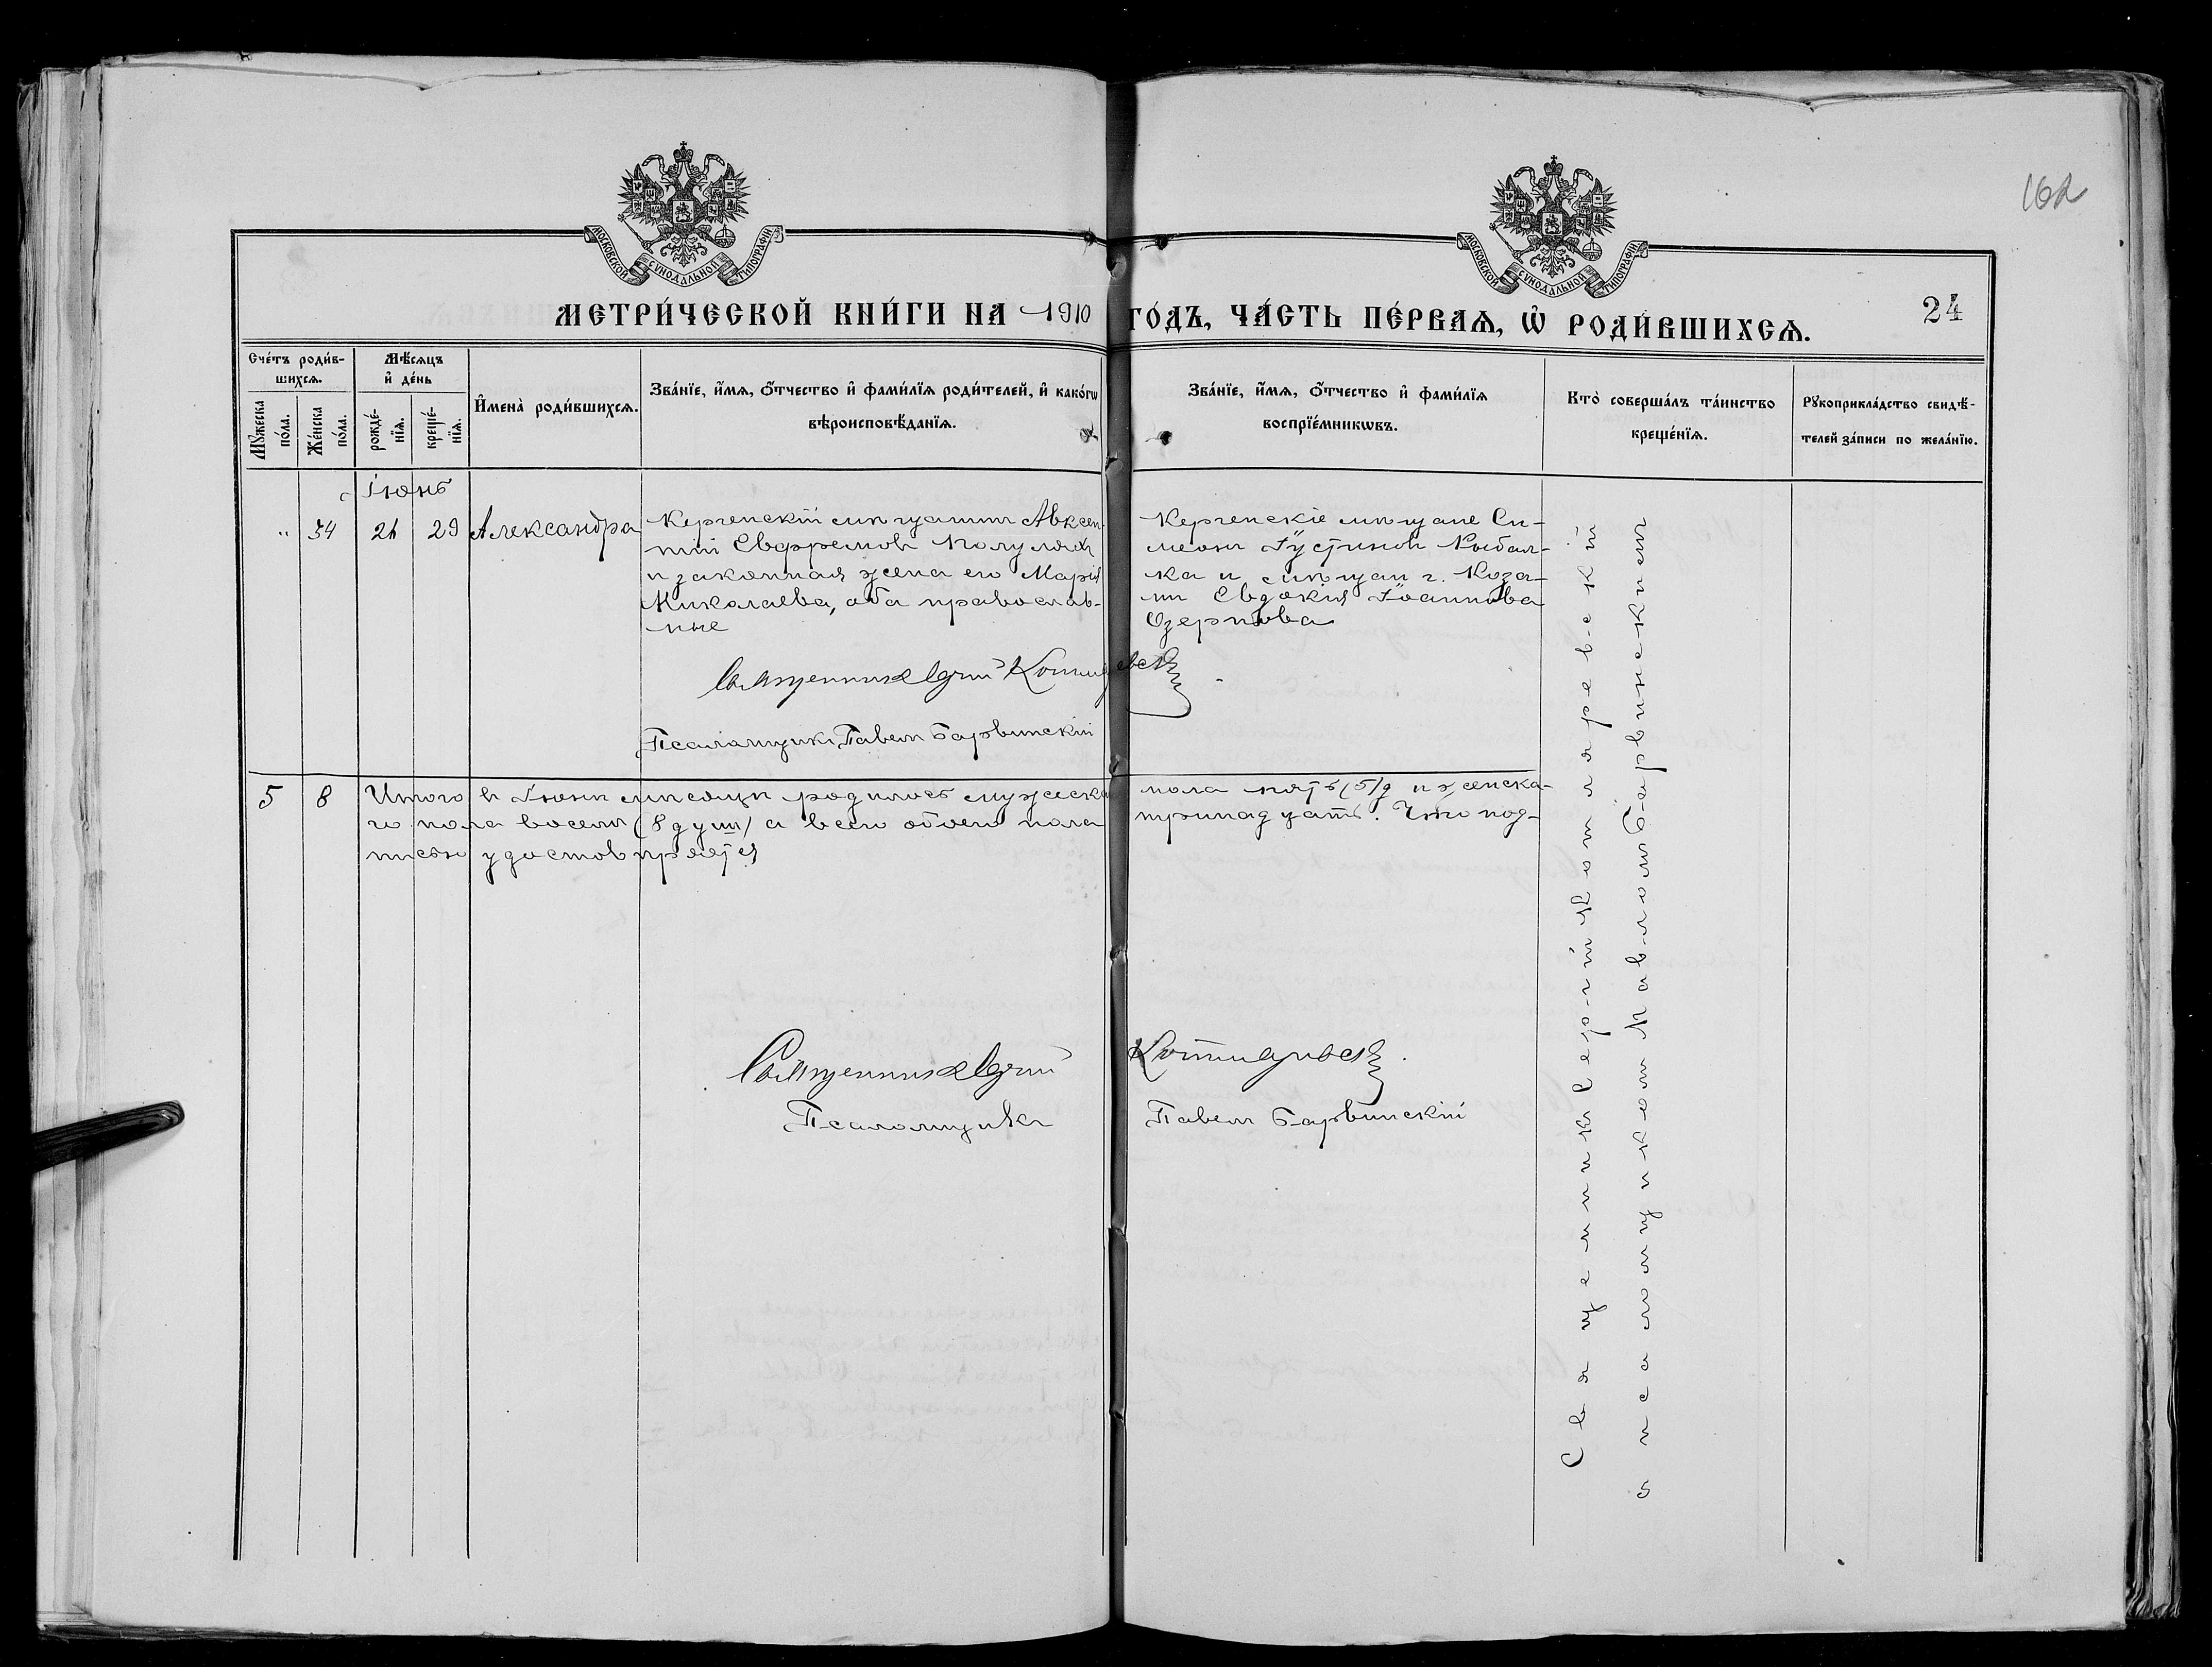 162
МОСКОВСКОЙ СѴНОДАЛЬНОЙ ТИПОГРАФІИ
МОСКОВСКОЙ СѴНОДАЛЬНОЙ ТИПОГРАФІИ
МЕТРИ́ЧЕСКОЙ КНИ́ГИ НА 1910 ГО́ДЪ, ЧА́СТЬ ПЕ́РВАѦ, Ѽ РОДИ́ВШИХСѦ.
24
Сче́тъ роди́в-
шихсѧ.
Мꙋжеска
по́ла.
Же́нска
по́ла.
Мѣ́сѧцъ
и҆ де́нь
рожде́-
нїѧ.
креще́-
нїѧ.
И҆мена̀ роди́вшихсѧ.
Зва́нїе, и҆́мѧ, ѻ҆́тчество и҆ фами́лїѧ роди́телей, и҆ како́гѡ
вѣроисповѣ́данїѧ.
Зва́нїе, и҆́мѧ, ѻ҆́тчество и҆ фами́лїѧ
воспрїе́мникѡвъ.
Кто̀ соверша́лъ та́инство
креще́нїѧ.
Рꙋкоприкла́дство свидѣ́-
телей за́писи по жела́нїю.
Іюнь
" 34 26 29 Александра
Керченскій мѣщанинъ Авксен-
тій Евфремовъ Полуляхъ
и законная жена его Марія
Николаева, оба православ-
ные
Керченскіе мѣщане Си-
меонъ Іустиновъ Рыбал-
ка и мѣщан. г.
Евдокія Іоаннова
Озернова
Священникъ Сергій Котляревскій
Псаломщикъ Павелъ Барвинскій
5 8 Итого въ Іюнѣ мѣсяцѣ родилось мужеска пола пять (5) д и женска-
го пола восемь (8 душ) а всего обоего пола тринадцать. Что под-
писью удостовѣряется
Священникъ Сергій Котляревскій.
Псаломщикъ Павелъ Барвинскій
Священникъ Сергій Котляревскій
съ псаломщикомъ Павломъ Барвинскимъ